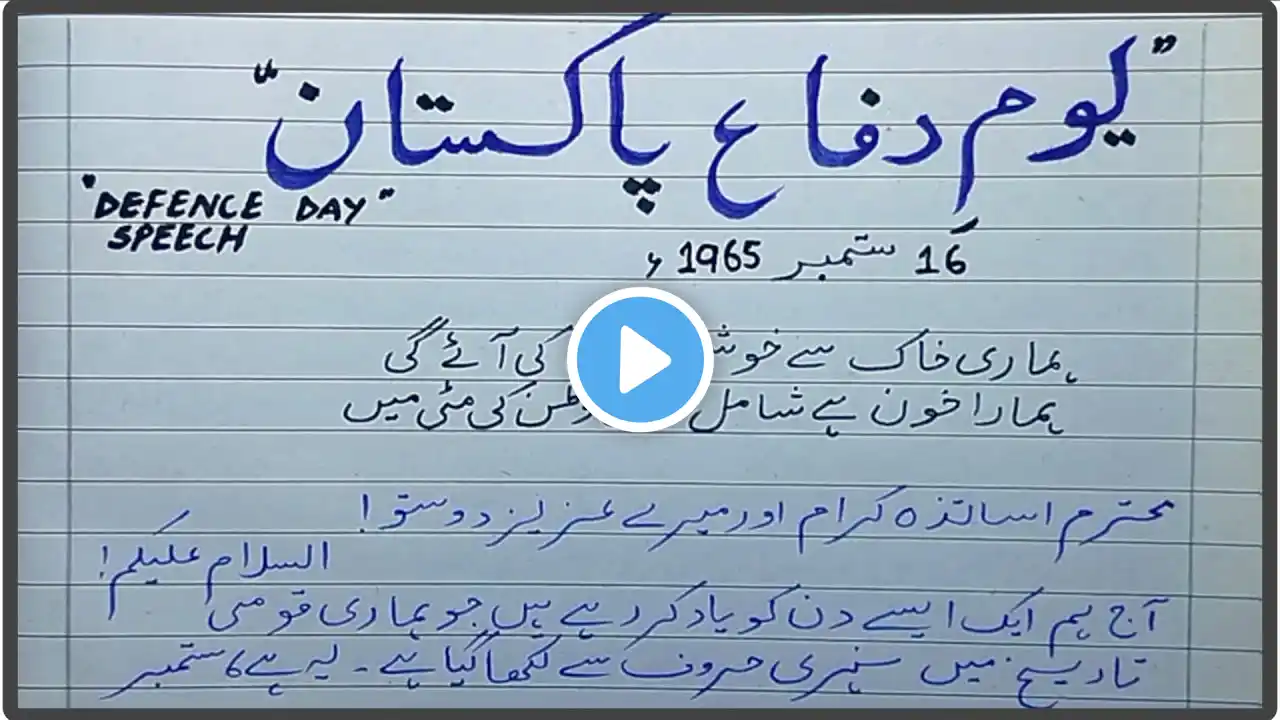 "یوم دفاع پاکستان"
"DEFENCE DAY"
SPEECH
16 ستمبر 1965ء
ہماری خاک سے کی آئے گی
ہمارا خون ہے شامل وطن کی مٹی میں
محترم اساتذہ کرام اور میرے عزیز دوستو!
السلام علیکم!
آج ہم ایک ایسے دن کو یاد کر رہے ہیں جو ہماری قومی
تاریخ میں سنہری حروف سے لکھا گیا ہے۔ یہ ہے 6 ستمبر